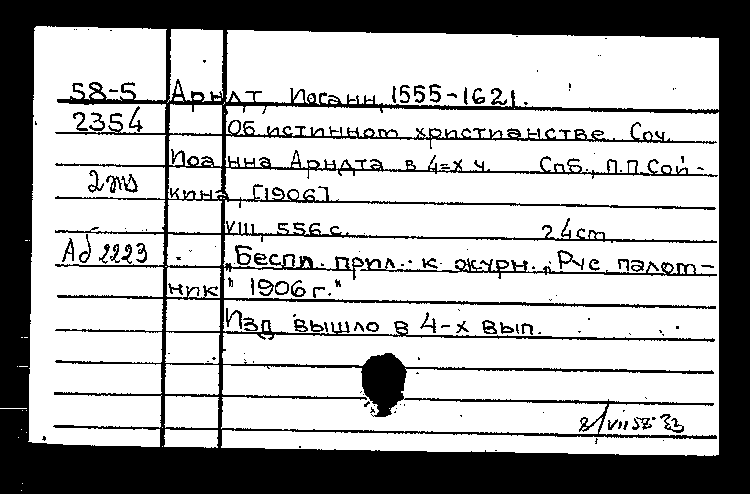 58-5 Арндт, Иоганн, 1555-1621.
2354 Об истинном христианстве. Соч.
Иоанна Арндта в 4=х ч. Спб., П.П.Сой-
2 кина, [1906].
VIII, 556 с. 24cm
Аб 2223 "Беспл. прил. к журн. "Рус. палом-
ник" 1906 г."
Изд. вышло в 4-х вып.